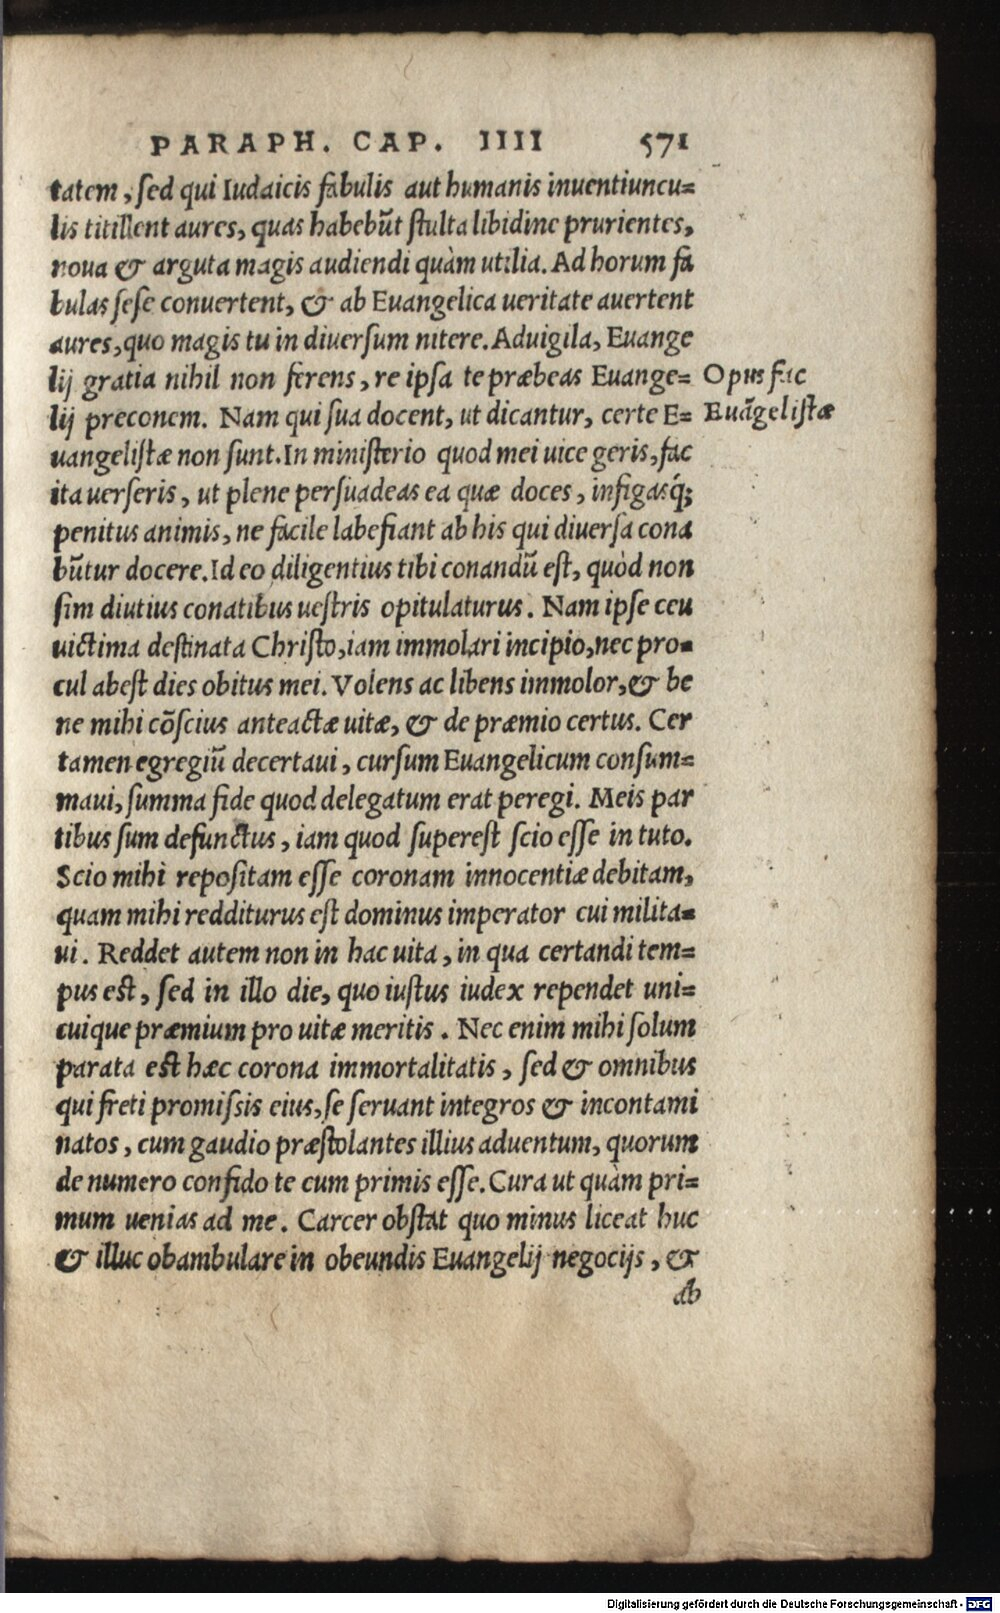 PARAPH. CAP. IIII 571
tatem, sed qui Iudaicis fabulis aut humanis inuentiuncu=
lis titillent aures, quas habebūt stulta libidine prurientes,
noua & arguta magis audiendi quàm utilia. Ad horum fa
bulas sese conuertent, & ab Euangelica ueritate auertent
aures, quo magis tu in diuersum nitere. Aduigila, Euange
lij gratia nihil non ferens, re ipsa te præbeas Euange=
Opus fac
lij preconem. Nam qui sua docent, ut dicantur, certe E=
Euāgelistæ
uangelistæ non sunt. In ministerio quod mei uice geris, fac
ita uerseris, ut plene persuadeas ea quæ doces, infigasq́;
penitus animis, ne facile labefiant ab his qui diuersa cona
būtur docere. Id eo diligentius tibi conandū est, quòd non
sim diutius conatibus uestris opitulaturus. Nam ipse ceu
uictima destinata Christo, iam immolari incipio, nec pro=
cul abest dies obitus mei. Volens ac libens immolor, & be
ne mihi cōscius anteactæ uitæ, & de præmio certus. Cer
tamen egregiū decertaui, cursum Euangelicum consum=
maui, summa fide quod delegatum erat peregi. Meis par
tibus sum defunctus, iam quod superest scio esse in tuto.
Scio mihi repositam esse coronam innocentiæ debitam,
quam mihi redditurus est dominus imperator cui milita=
ui. Reddet autem non in hac uita, in qua certandi tem=
pus est, sed in illo die, quo iustus iudex rependet uni=
cuique præmium pro uitæ meritis. Nec enim mihi solum
parata est hæc corona immortalitatis, sed & omnibus
qui freti promissis eius, se seruant integros & incontami
natos, cum gaudio præstolantes illius aduentum, quorum
de numero confido te cum primis esse. Cura ut quàm pri=
mum uenias ad me. Carcer obstat quo minus liceat huc
& illuc obambulare in obeundis Euangelij negocijs, &
ab
Digitalisierung gefördert durch die Deutsche Forschungsgemeinschaft - DFG